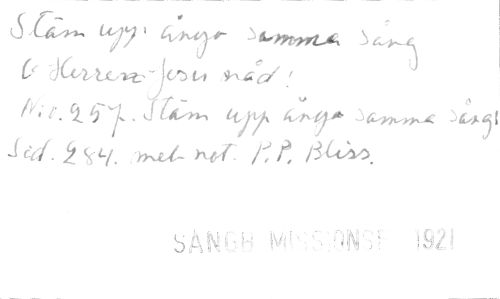 Stäm upp ånyo samma sång
O Herren Jesu nåd!
N:o. 257. Stäm upp ånyo samma sång!
Sid. 284. mel. not. P.P. Bliss.
SÅNGB MISSIONSF 1921